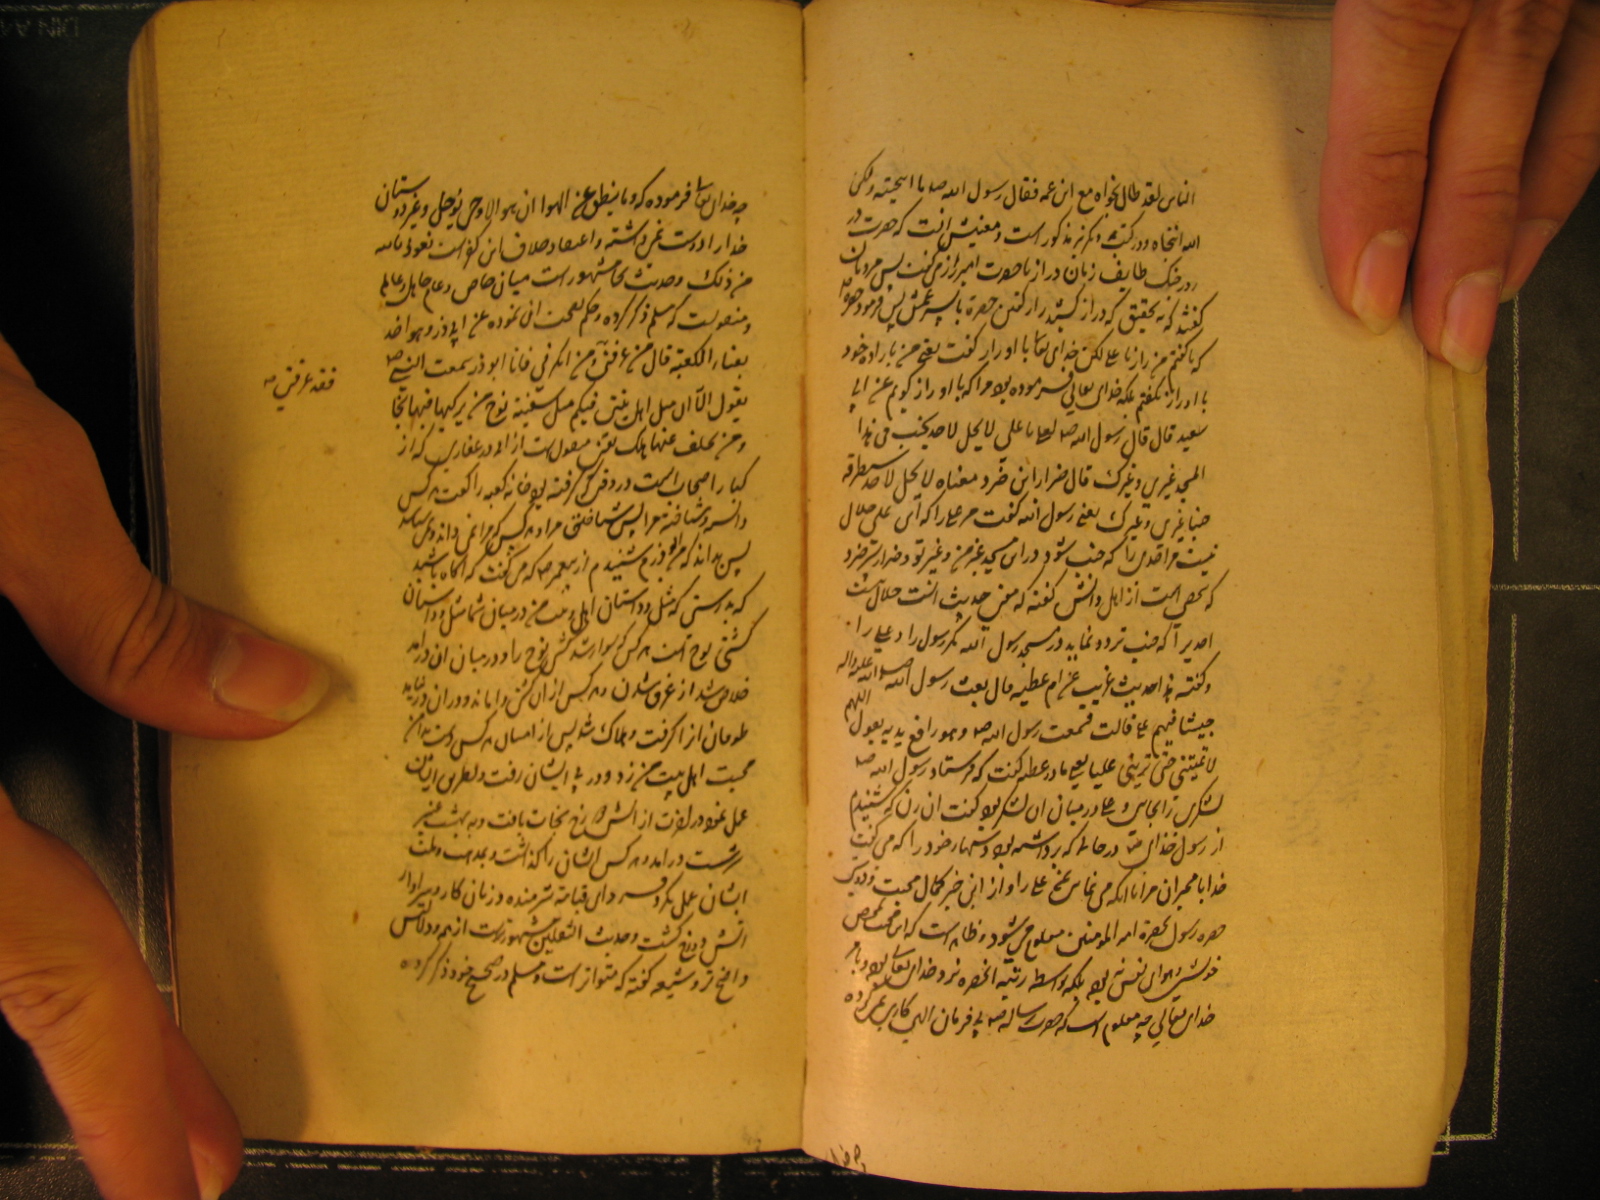 الناس لقد طال نجواه مع ابن عمه فقال رسول الله صه ما انتجیته ولکن
الله انتجاه ودر کتب دیگر نیز مذکور است ومعنیش انست که حضرت در
در جنک طایف زبان دراز با حضرت امیر راز می کفت پس مردمان
کفتند که به تحقیق که دراز کشید راز کفتن حضرة با پسر عمش پس فرمود حضرة صه
که نکفتم من راز با علی لکن خدای تعالی با او راز کفت یعنی من باراده خود
با او راز نکفتم بلکه خدای تعالی فرموده بود مرا که با او راز کویم عن ابی
سعید قال قال رسول الله صه لعلی یا علی لا یحل لاحد یجنب فی هذا
المسجد غیری وغیرک قال ضرار ابن ضرد معناه لا یحل لاحد یستطرقه
جنبا غیری وغیرک یعنی رسول الله کفت مر علی را که ای علی حلال
نیست مر احدی را که جنب شود در این مسجد بغیر من وغیر تو وضرار بن ضرد
که شخصی است از اهل دانش کفته که معنی حدیث انست حلال نیست
احدیرا که جنب تردد نماید در مسجد رسول الله مکر رسول را وعلی را
وکفته هذا حدیث غریب عن ام عطیه قال بعث رسول الله صلی الله علیه واله
جیشا فیهم علی قالت فسمعت رسول الله صه وهو رافع یدیه یقول اللهم
لا تمیتنی حتی ترینی علیا یعنی مادر عطیه کفت که فرستاد رسول الله صه
لشکری را بجایی وعلی در میان ان لشکر بود کفت ان زن که شنیدم
از رسول خدای صه در حالتی که برداشته بود دستهای خود را که می کفت
خدایا ممیران مرا تا انکه می نمایی بمن علی را واز این خبر کمال محبت ونزدیکی
حضره رسول بحضرة امیر المومنین معلوم می شود وظاهر است که این محبت بمحض
خویشی وهوای نفس نه بود بلکه بواسطه رتبه انحضره نزد خدای تعالی بود وبامر
خدای تعالی چه معلوم است که حضرت رسالة صه بی فرمان الهی کاری نمی کرده
چه خدای تعالی فرموده که وما ینطق عن الهوا ان هو الا وحی یوحی وغیر دوستان
خدا را دوست نمی داشته واعتقاد خلاف این کفر است نعوذ بالله
من ذلک وحدیث نجات مشهور است میان خاص وعام جاهل وعالم
ومنصوبست که مسلم ذکر کرده وحکم بصحت ان نموده عن ابی ذر وهو اخذ
بفناء الکعبة قال من عرفنی ومن انکرنی فانا ابوذر سمعت النبی صه
یقول الا ان مثل اهل بیتی فیکم مثل سفینة نوح من رکبها فیها نجا
ومن تخلف عنها هلک یعنی منقول است از ابو ذر غفاری که از
کبار اصحاب است در وقتی که کرفته بود خانه کعبه را کفت هر کس
دانسته وشناخته مرا پس شناختی مرا وهر کس که مرا نمی داند ونمی شناسد
پس بداند که من ابوذرم شنیدم از پیغمبر صه که می کفت که اکاه باشید
که بدرستی که مثل وداستان اهل بیت من در میان شما مثل وداستان
کشتی نوح است هر کس که سوار شد کشتی نوح را ودر میان ان در امد
خلاص شد از غرق شدن وهر کس از ان کشتی وا ماند ودر ان در نیاید
طوفان او را کرفت وهلاک شد پس از امتان هر کس دست بدامن
محبت اهل بیت من زد ودر پی ایشان رفت وبطریق ایشان
عمل نمود در اخرت از اتش دوزخ نجات یافت وبه بهشت عنبر
سرشت در امد وهر کس ایشان را کذاشت وبمذهب وملت
ایشان عمل نکرد فردای قیامة شرمنده وزیان کار وسزاوار
اتش دوزخ کشت وحدیث الثقلین مشهور تر است از همه ودلالتش
واضح تر وشیعه کفته که متواتر است ومسلم در صحیح خود ذکر کرده
فقد عرفنی صه